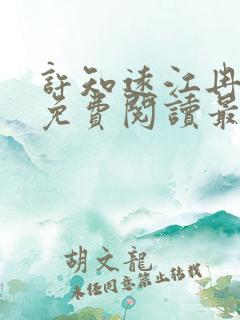 許知遠江冉
免費閱讀最
胡文龍
未經同意禁止转载